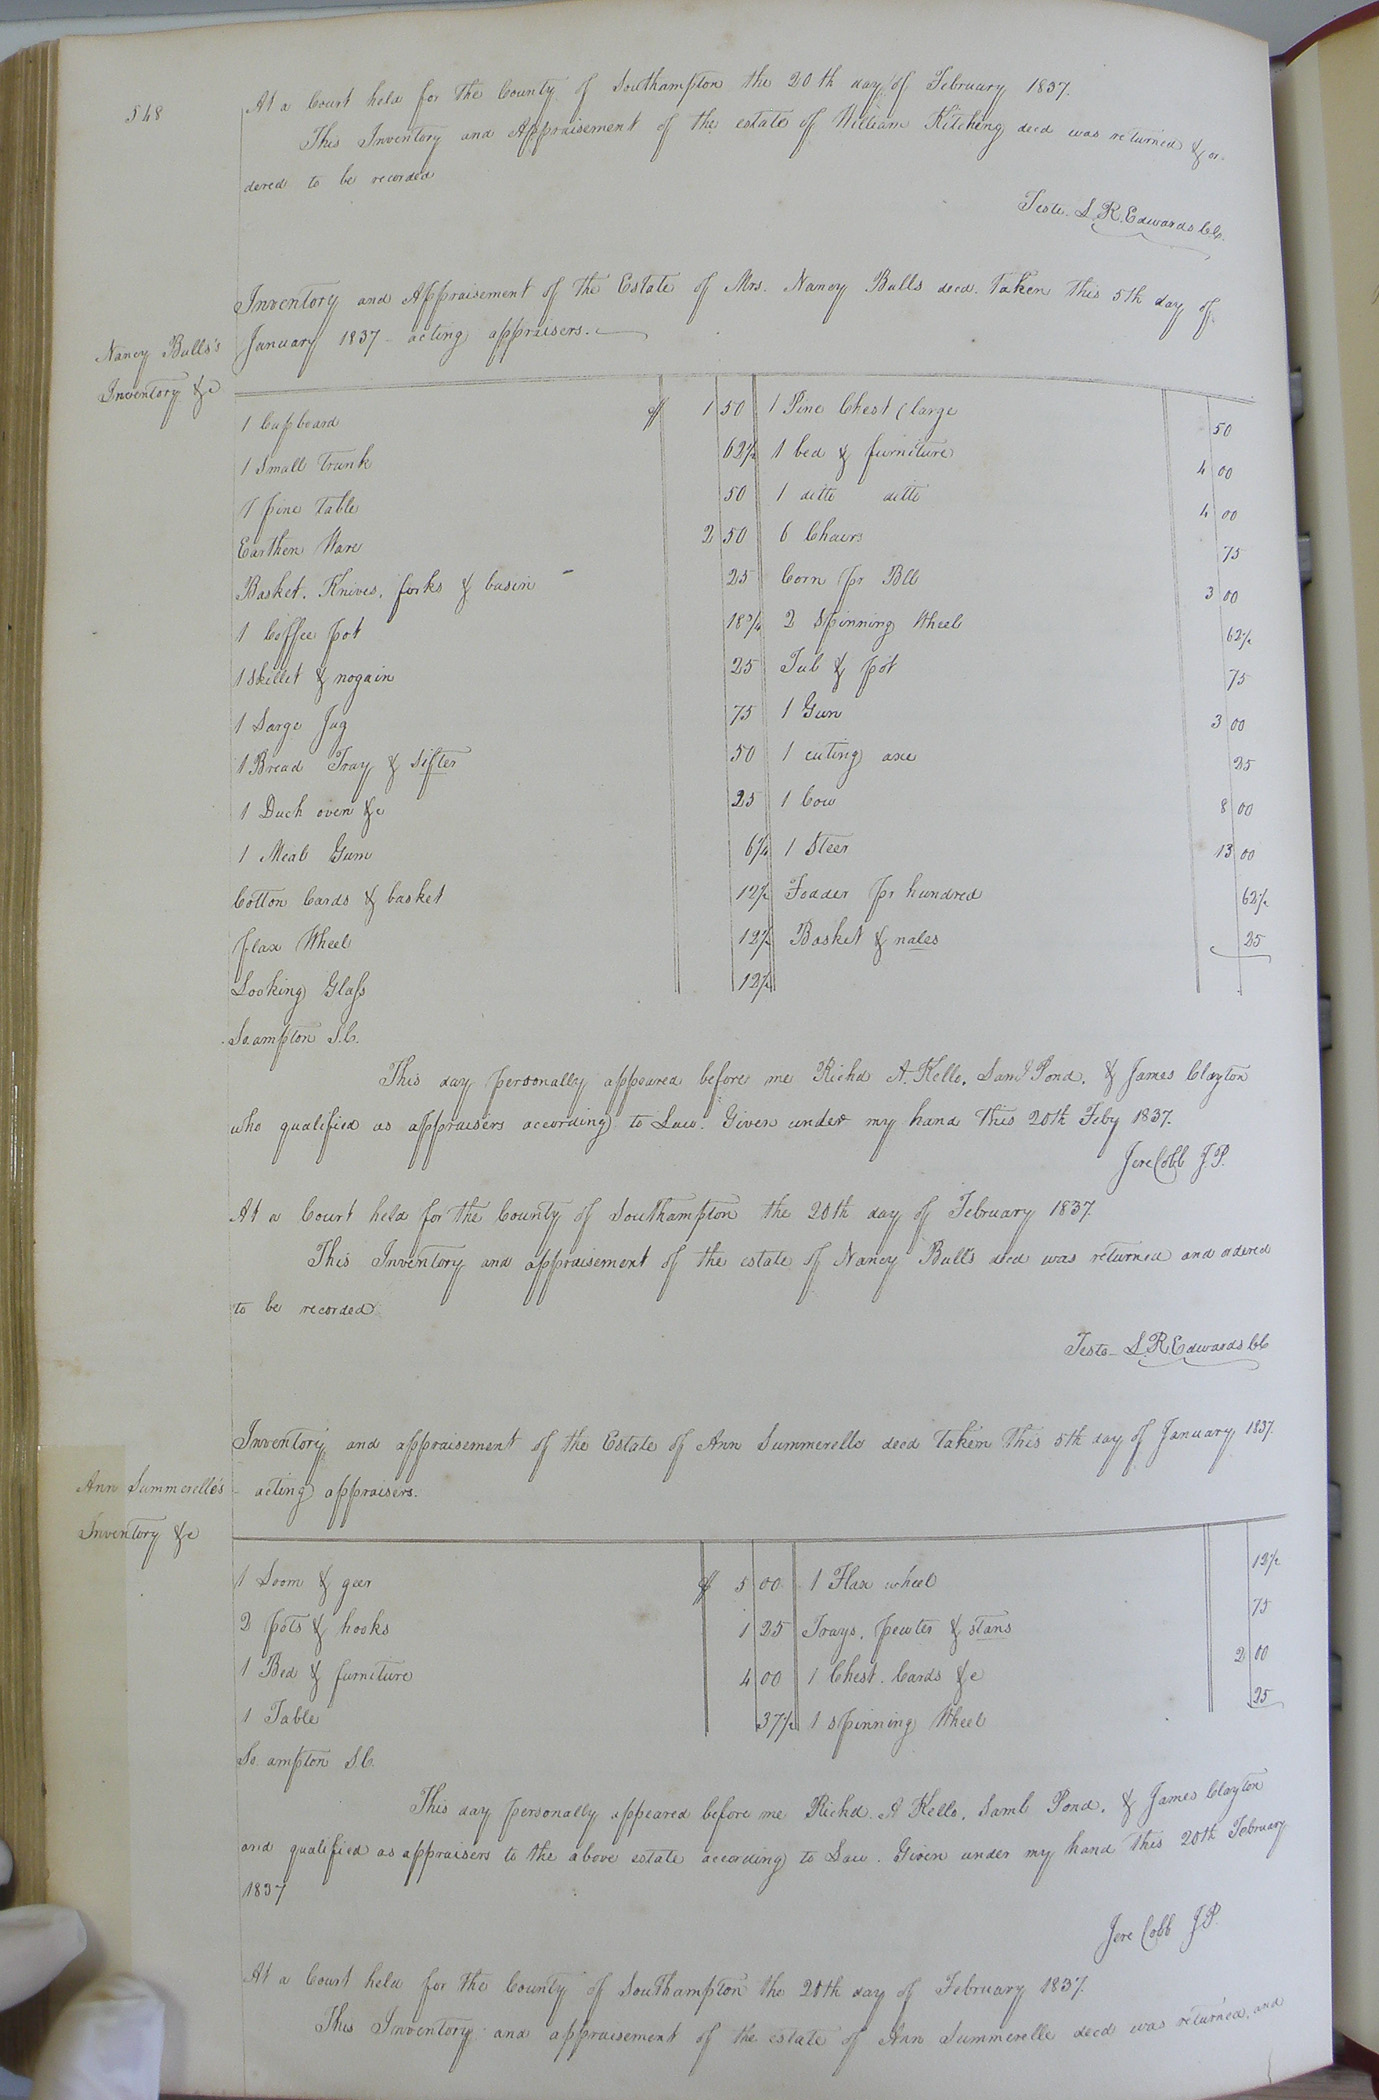 548
At a Court held for the County of Southampton the 20th day of February 1837.
This Inventory and Appraisement of the estate of William Kitching decd was returned & or-
dered to be recorded
Teste. L. R. Edwards CC.
Nancy Bulls's
Inventory &c
Inventory and Appraisement of the Estate of Mrs. Nancy Bulls decd. Taken this 5th day of
January 1837 - acting appraisers.
1 Cupboard $ 1 50 1 Pine Chest (large 50
1 Small Trunk 62½ 1 bed & furniture 4 00
1 pine Table 50 1 ditto ditto 4 00
Earthen Ware 2 50 6 Chairs 75
Basket. Knives, forks & basin - 25 Corn pr Bll 3 00
1 Coffee pot 18¾ 2 Spinning Wheel 62½
1 Skillet & nogain 25 Tub & pot 75
1 Large Jug 75 1 Gun 3 00
1 Bread Tray & Sifter 50 1 cuting axe 25
1 Duch oven &c 25 1 Cow 8 00
1 Meal Gum 6¼ 1 Steer 13 00
Cotton Cards & basket 12½ Fodder pr hundred 62½
flax Wheel 12½ Basket & nales 25
Looking Glass 12½
So.ampton S.C.
This day personally appeared before me Richd A. Kello, Saml Pond, & James Clayton
who qualified as appraisers according to Law. Given under my hand this 20th Feby 1837.
Jere Cobb J.P.
At a Court held for the County of Southampton the 20th day of February 1837.
This Inventory and appraisement of the estate of Nancy Bulls decd was returned and ordered
to be recorded
Teste - L. R. Edwards CC
Ann Summerelle's
Inventory &c
Inventory and appraisement of the Estate of Ann Summerelle decd Taken this 5th day of January 1837.
- acting appraisers.
1 Loom & geer $ 5 00 1 Flax wheel 12½
2 pots & hooks 1 25 Trays, pewter & stans 75
1 Bed & furniture 4 00 1 Chest. Cards &c 2 00
1 Table 37½ 1 spinning Wheel 25
So.ampton S.C.
This day personally appeared before me Richd. A Kello, Saml Pond, & James Clayton
and qualified as appraisers to the above estate according to Law. Given under my hand this 20th February
1837
Jere Cobb J.P.
At a Court held for the County of Southampton the 20th day of February 1837.
This Inventory and appraisement of the estate of Ann Summerelle decd was returned and